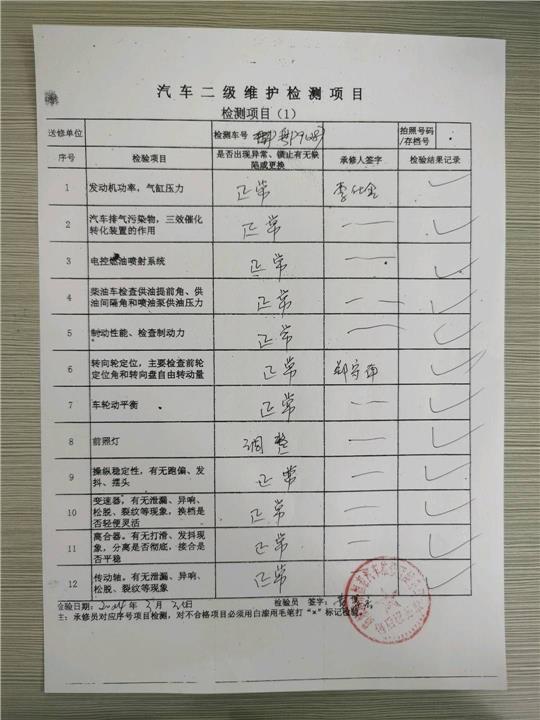 汽车二级维护检测项目
检测项目（1）
送修单位 检测车号 拍照号码/存档号
序号 检验项目 是否出现异常、锁止有无缺陷或更换 承修人签字 检验结果记录
1 发动机功率，气缸压力 正常 李仕金 ✓
2 汽车排气污染物，三效催化 正常 — ✓
转化装置的作用
3 电控燃油喷射系统 正常 — ✓
4 柴油车检查供油提前角、供 正常 — ✓
油间隔角和喷油泵供油压力
5 制动性能、检查制动力 正常 — ✓
6 转向轮定位，主要检查前轮 正常 ✓
定位角和转向盘自由转动量
7 车轮动平衡 正常 — ✓
8 前照灯 调整 — ✓
9 操纵稳定性，有无跑偏、发 正常 — ✓
抖、摆头
10 变速器，有无泄漏、异响、 正常 — ✓
松脱、裂纹等现象，换档是
否轻便灵活
11 离合器。有无打滑、发抖现 正常 — ✓
象，分离是否彻底，接合是
否平稳
12 传动轴。有无泄漏、异响、 正常 — ✓
松脱、裂纹等现象
检验日期： 年 3 月 日 检验员 签字：
主：承修员对应序号项目检测，对不合格项目必须用白漆用毛笔打“×”标记检验。